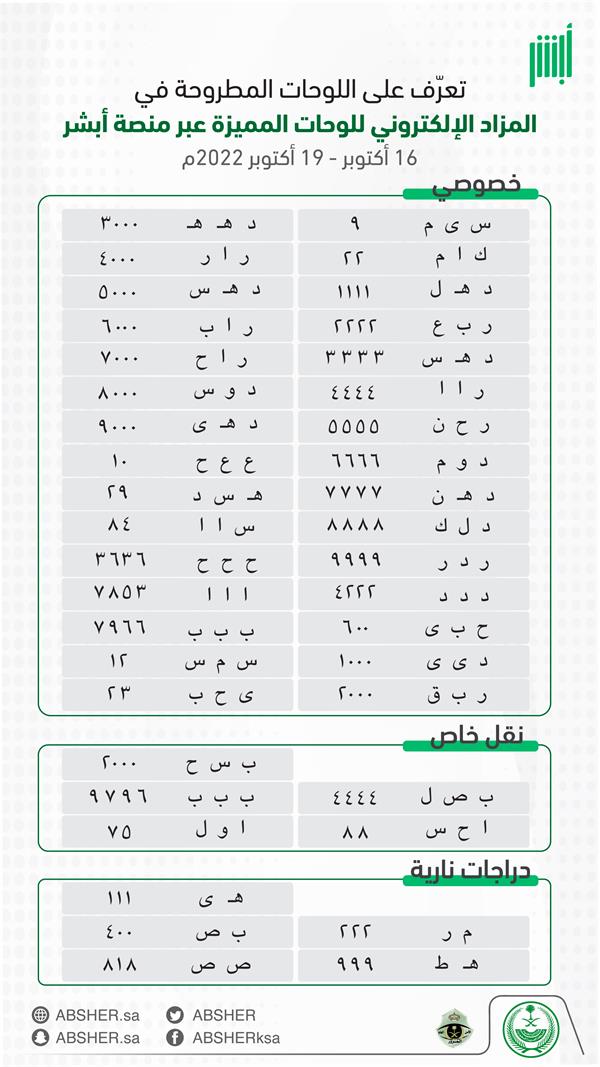 أبشر
تعرّف على اللوحات المطروحة في
المزاد الإلكتروني للوحات المميزة عبر منصة أبشر
16 أكتوبر - 19 أكتوبر 2022م
خصوصي
س ى م ٩ د هـ هـ ٣٠٠٠
ك ا م ٢٢ ر ا ر ٤٠٠٠
د هـ ل ١١١١ د هـ س ٥٠٠٠
ر ب ع ٢٢٢٢ ر ا ب ٦٠٠٠
د هـ س ٣٣٣٣ ر ا ح ٧٠٠٠
ر ا ا ٤٤٤٤ د و س ٨٠٠٠
ر ح ن ٥٥٥٥ د هـ ى ٩٠٠٠
د و م ٦٦٦٦ ع ع ح ١٠
د هـ ن ٧٧٧٧ هـ س د ٢٩
د ل ك ٨٨٨٨ س ا ا ٨٤
ر د ر ٩٩٩٩ ح ح ح ٣٦٣٦
د د د ٤٢٢٢ ا ا ا ٧٨٥٣
ح ب ى ٦٠٠ ب ب ب ٧٩٦٦
د ى ى ١٠٠٠ س م س ١٢
ر ب ق ٢٠٠٠ ى ح ب ٢٣
نقل خاص
ب س ح ٢٠٠٠
ب ص ل ٤٤٤٤ ب ب ب ٩٧٩٦
ا ح س ٨٨ ا و ل ٧٥
دراجات نارية
هـ ى ١١١
م ر ٢٢٢ ب ص ٤٠٠
هـ ط ٩٩٩ ص ص ٨١٨
ABSHER.sa ABSHER
ABSHER.sa ABSHERksa